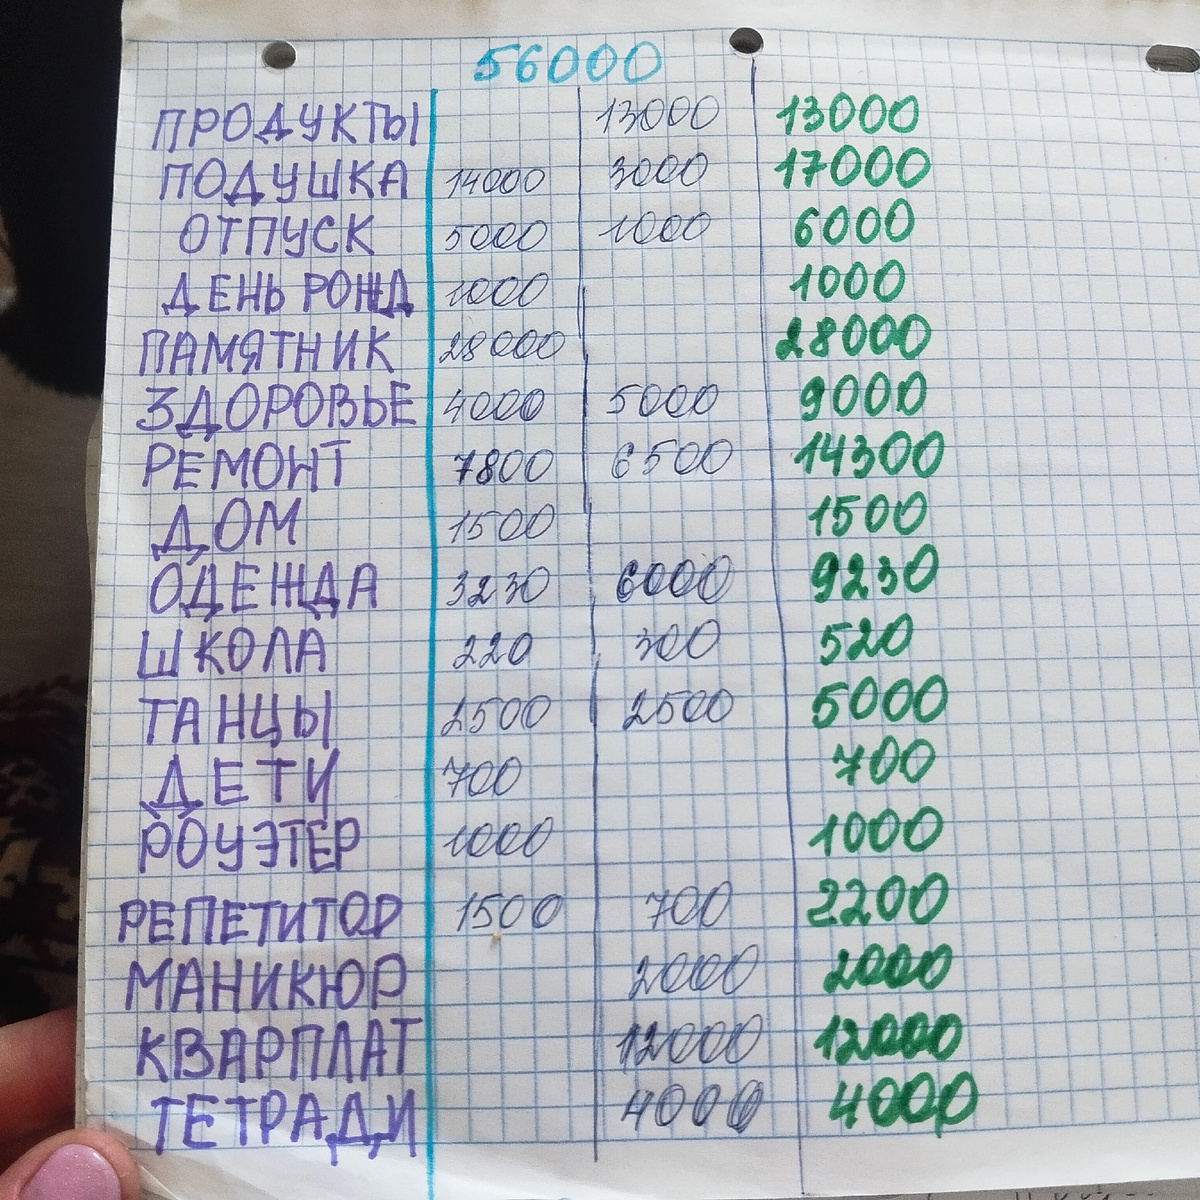 56000
ПРОДУКТЫ 13000 13000
ПОДУШКА 14000 3000 17000
ОТПУСК 5000 1000 6000
ДЕНЬ РОЖД 1000 1000
ПАМЯТНИК 28000 28000
ЗДОРОВЬЕ 4000 5000 9000
РЕМОНТ 7800 6500 14300
ДОМ 1500 1500
ОДЕЖДА 3230 6000 9230
ШКОЛА 220 300 520
ТАНЦЫ 2500 2500 5000
ДЕТИ 700 700
РОУЭТЕР 1000 1000
РЕПЕТИТОР 1500 700 2200
МАНИКЮР 2000 2000
КВАРПЛАТ 12000 12000
ТЕТРАДИ 4000 4000